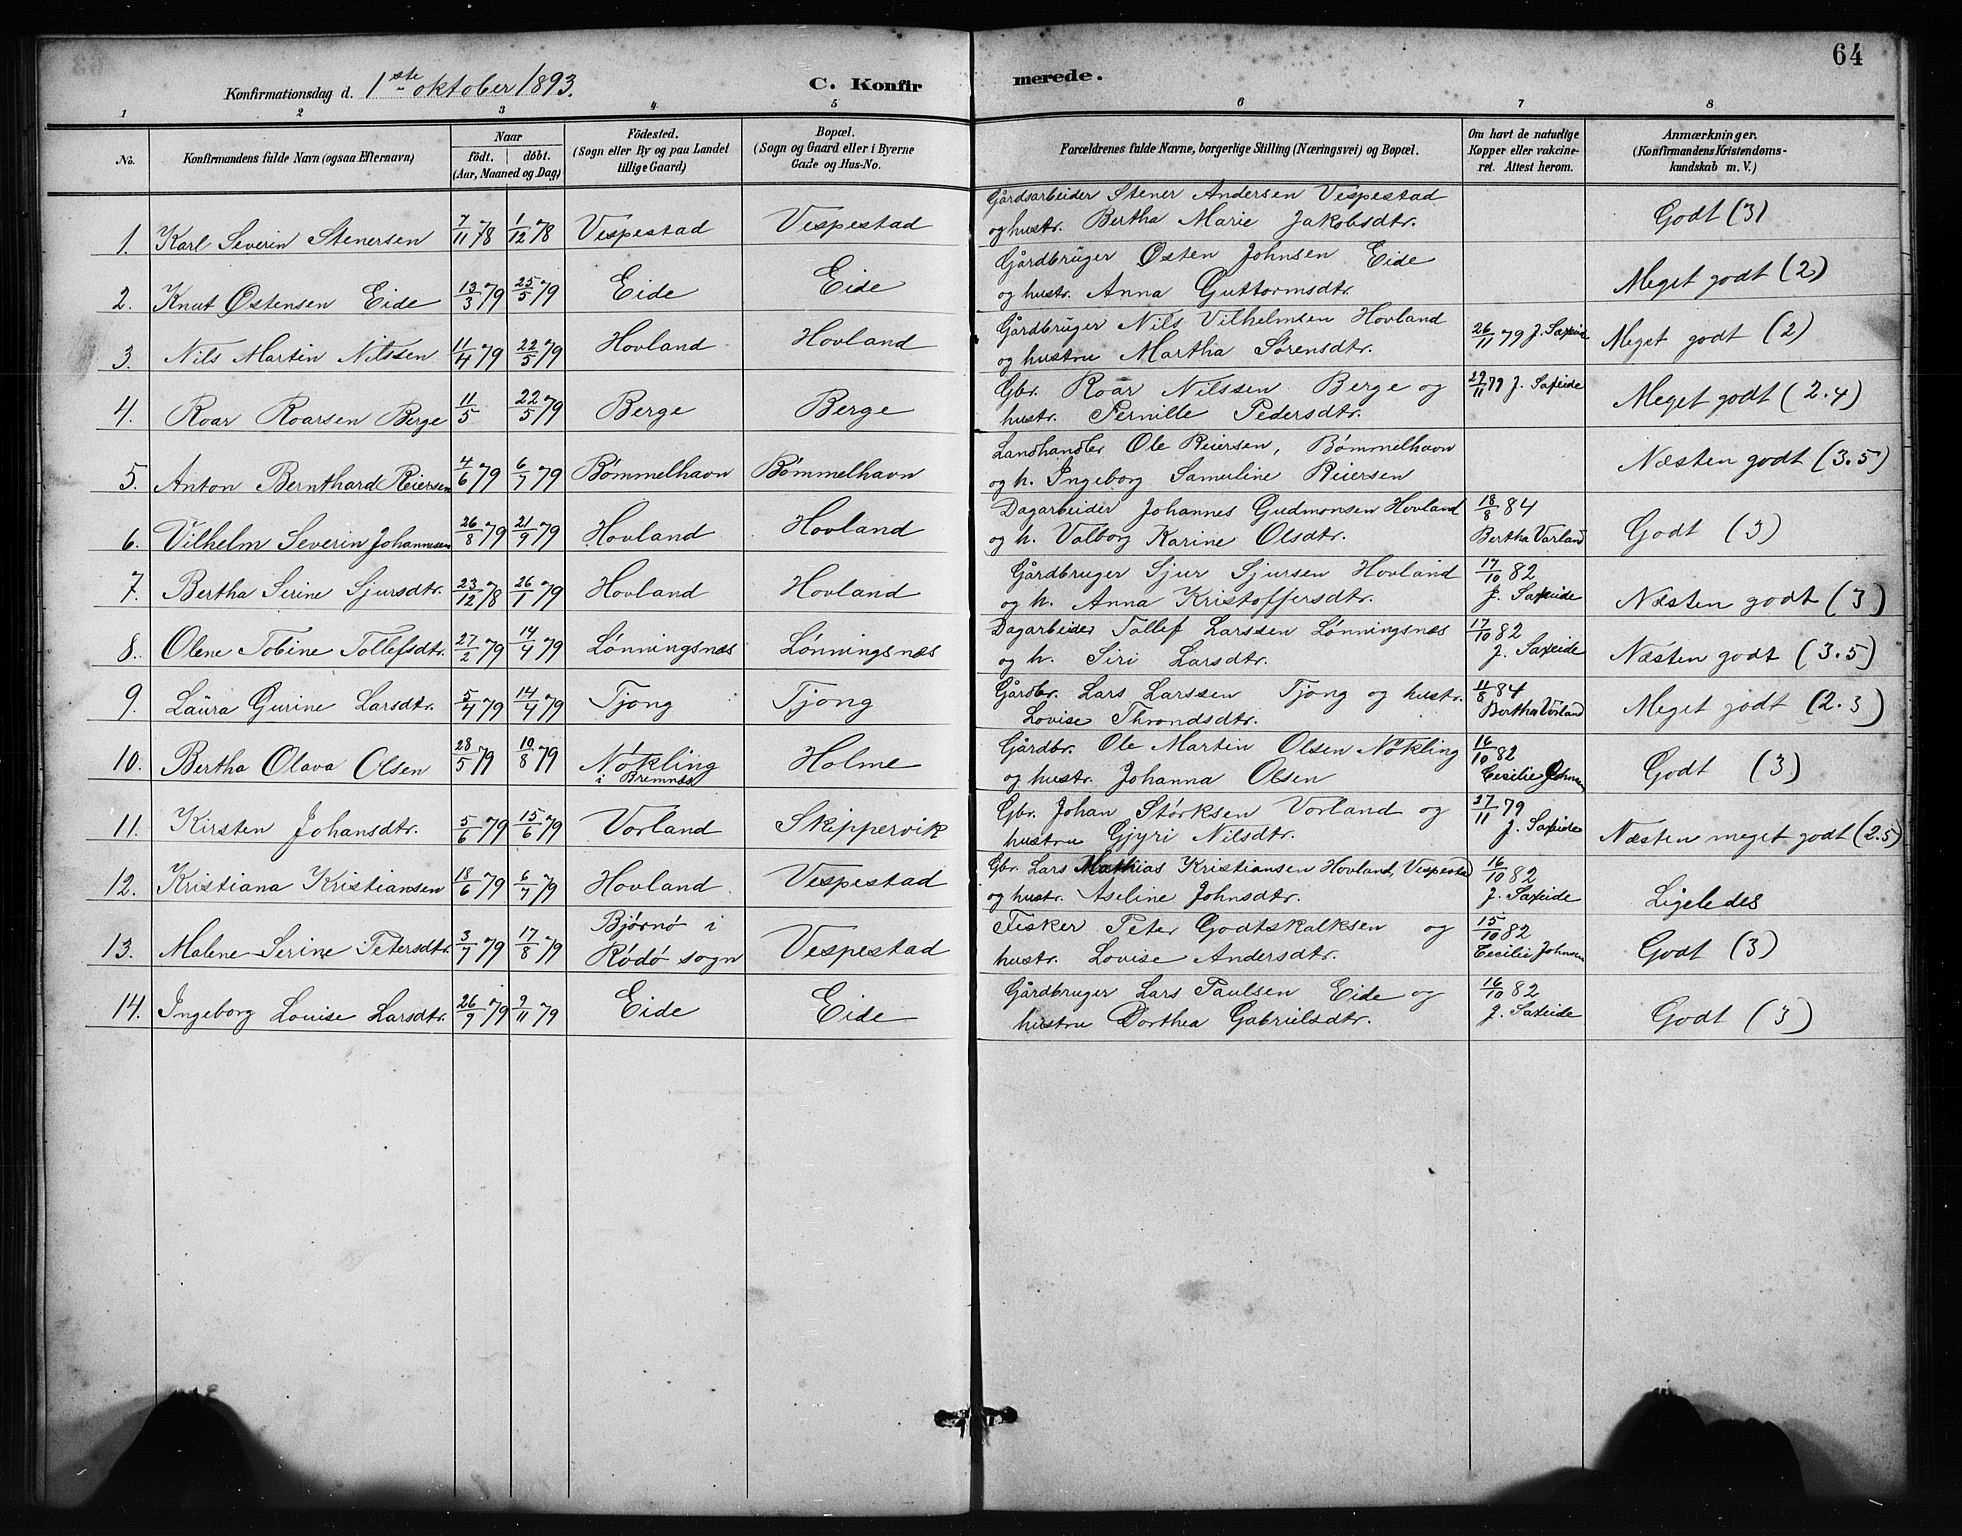 64
Konfirmationsdag d. 1ste oktober 1893.
C. Konfirmerede.
1 2 3 4 5 6 7 8
No.
Konfirmandens fulde Navn (ogsaa Efternavn)
Naar
födt. döbt.
(Aar, Maaned og Dag)
Födested.
(Sogn eller By og paa Landet
tillige Gaard)
Bopæl.
(Sogn og Gaard eller i Byerne
Gade og Hus-No.
Forældrenes fulde Navne, borgerlige Stilling (Næringsvei) og Bopæl.
Om havt de naturlige
Kopper eller vakcine-
ret. Attest herom.
Anmærkninger.
(Konfirmandens Kristendoms-
kundskab m. V.)
1. Karl Severin Stenersen 7/11 78 1/12 78 Vespestad Vespestad
Gårdsarbeider Stener Andersen Vespestad
og hustr. Bertha Marie Jakobsdtr.
Godt (3)
2. Knut Østensen Eide 13/3 79 25/5 79 Eide Eide
Gårdbruger Østen Johnsen Eide
og hustr. Anna Guttormsdtr.
Meget godt (2)
3. Nils Martin Nilssen 11/4 79 22/5 79 Hovland Hovland
Gårdbruger Nils Vilhelmsen Hovland
og hustru Martha Sørensdtr.
26/11 79 J. Saxeide
Meget godt (2)
4. Roar Roarsen Berge 11/5 22/5 79 Berge Berge
Gbr. Roar Nilssen Berge og
hustr. Pernille Pedersdtr.
29/11 79 J. Saxeide
Meget godt (2.4)
5. Anton Bernthard Reiersen 4/6 79 6/7 79 Bømmelhavn Bømmelhavn
Landhandler Ole Reiersen, Bømmelhavn
og h. Ingeborg Samuline Reiersen
Næsten godt (3.5)
6. Vilhelm Severin Johannesen 26/8 79 21/9 79 Hovland Hovland
Dagarbeider Johannes Gudmonsen Hovland
og h. Valborg Karine Olsdtr.
18/8 84
Bertha Vorland
Godt (3)
7. Bertha Serine Sjursdtr. 23/12 78 26/1 79 Hovland Hovland
Gårdbruger Sjur Sjursen Hovland
og h. Anna Kristoffersdtr.
17/10 82
J. Saxeide
Næsten godt (3)
8. Olene Tobine Tollefsdtr. 27/2 79 14/4 79 Lønningsnæs Lønningsnæs
Dagarbeider Tollef Larssen Lønningsnæs
og h. Siri Larsdtr.
17/10 82
J. Saxeide
Næsten godt (3.5)
9. Laura Gurine Larsdtr. 5/4 79 14/4 79 Tjong Tjong
Gårdbr. Lars Larssen Tjong og hustr.
Lovise Throndsdtr.
11/8 84
Bertha Vorland
Meget godt (2.3)
10. Bertha Olava Olsen 28/5 79 10/8 79 Nøkling Holme
i Bremnæs
Gårdbr. Ole Martin Olsen Nøkling
og hustr. Johanna Olsen
16/10 82
Cecilie Johnsen
Godt (3)
11. Kirsten Johansdtr. 5/6 79 15/6 79 Vorland Skippervik
Gbr. Johan Størksen Vorland og
hustru Gjyri Nilsdtr.
27/11 79
J. Saxeide
Næsten meget godt (2.5)
12. Kristiana Kristiansen 18/6 79 6/7 79 Hovland Vespestad
Gbr. Lars Mathias Kristiansen Hovland, Vespestad
og hustr. Aseline Johnsdtr.
16/10 82
J. Saxeide
Ligeledes
13. Malene Serine Petersdtr. 3/7 79 17/8 79 Bjørnø i
Rødø sogn Vespestad
Fisker Peter Godtskalksen og
hustr. Lovise Andersdtr.
15/10 82
Cecilie Johnsen
Godt (3)
14. Ingeborg Louise Larsdtr. 26/9 79 9/11 79 Eide Eide
Gårdbruger Lars Paulsen Eide og
hustru Dorthea Gabrielsdtr.
16/10 82
J. Saxeide
Godt (3)